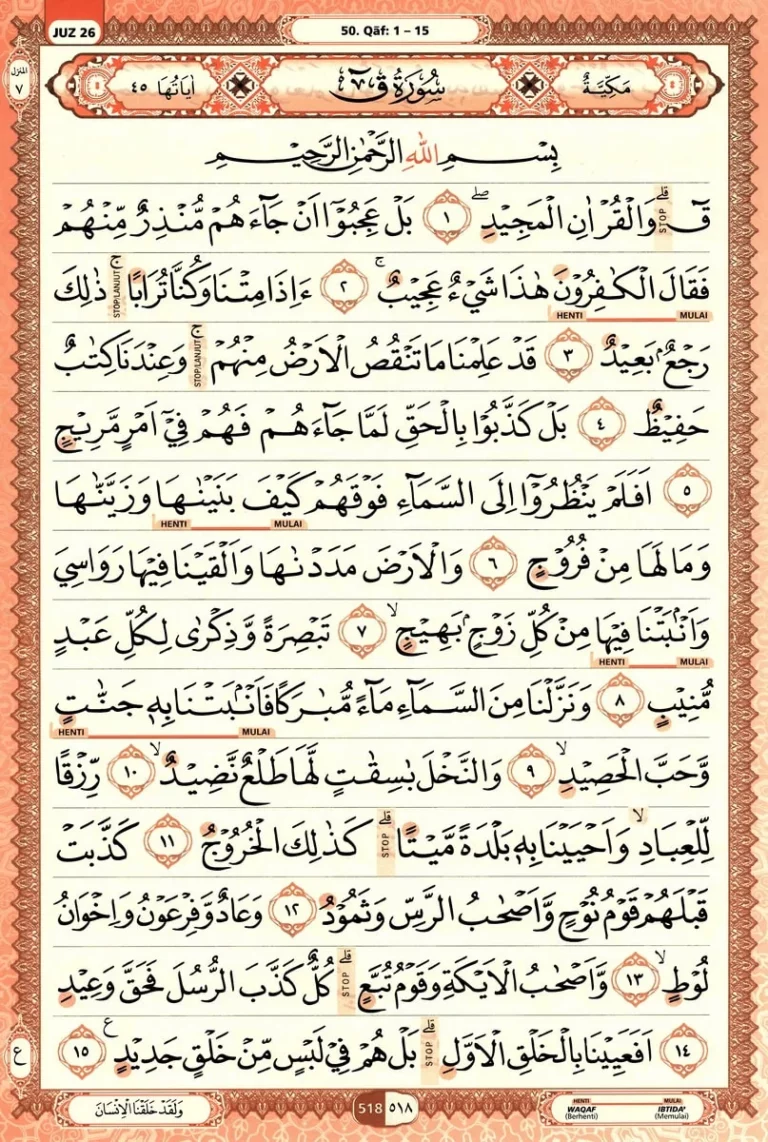 JUZ 26
50. Qāf: 1 – 15
المنزل ٧
مَكِّيَّةٌ
سُوْرَةُ قۤ
اٰيَاتُهَا ٤٥
بِسْمِ اللّٰهِ الرَّحْمٰنِ الرَّحِيْمِ
قۤ ۗ STOP وَالْقُرْاٰنِ الْمَجِيْدِ ۖ ١ بَلْ عَجِبُوْٓا اَنْ جَاۤءَهُمْ مُّنْذِرٌ مِّنْهُمْ
فَقَالَ الْكٰفِرُوْنَ هٰذَا شَيْءٌ عَجِيْبٌ ۚ ٢ ءَاِذَا مِتْنَا وَكُنَّا تُرَابًا ۚ STOP/LANJUT ذٰلِكَ
MULAI HENTI
رَجْعٌۢ بَعِيْدٌ ٣ قَدْ عَلِمْنَا مَا تَنْقُصُ الْاَرْضُ مِنْهُمْ ۚ STOP/LANJUT وَعِنْدَنَا كِتٰبٌ
حَفِيْظٌ ٤ بَلْ كَذَّبُوْا بِالْحَقِّ لَمَّا جَاۤءَهُمْ فَهُمْ فِيْٓ اَمْرٍ مَّرِيْجٍ
٥ اَفَلَمْ يَنْظُرُوْٓا اِلَى السَّمَاۤءِ فَوْقَهُمْ كَيْفَ بَنَيْنٰهَا وَزَيَّنّٰهَا
MULAI HENTI
وَمَا لَهَا مِنْ فُرُوْجٍ ٦ وَالْاَرْضَ مَدَدْنٰهَا وَاَلْقَيْنَا فِيْهَا رَوَاسِيَ
وَاَنْۢبَتْنَا فِيْهَا مِنْ كُلِّ زَوْجٍۢ بَهِيْجٍ ۙ ٧ تَبْصِرَةً وَّذِكْرٰى لِكُلِّ عَبْدٍ
MULAI HENTI
مُّنِيْبٍ ٨ وَنَزَّلْنَا مِنَ السَّمَاۤءِ مَاۤءً مُّبٰرَكًا فَاَنْۢبَتْنَا بِهٖ جَنّٰتٍ
MULAI HENTI
وَّحَبَّ الْحَصِيْدِ ۙ ٩ وَالنَّخْلَ بٰسِقٰتٍ لَّهَا طَلْعٌ نَّضِيْدٌ ۙ ١٠ رِّزْقًا
لِّلْعِبَادِ ۙ وَاَحْيَيْنَا بِهٖ بَلْدَةً مَّيْتًا ۗ STOP كَذٰلِكَ الْخُرُوْجُ ١١ كَذَّبَتْ
قَبْلَهُمْ قَوْمُ نُوْحٍ وَّاَصْحٰبُ الرَّسِّ وَثَمُوْدُ ١٢ وَعَادٌ وَّفِرْعَوْنُ وَاِخْوَانُ
لُوْطٍ ۙ ١٣ وَّاَصْحٰبُ الْاَيْكَةِ وَقَوْمُ تُبَّعٍ ۗ STOP كُلٌّ كَذَّبَ الرُّسُلَ فَحَقَّ وَعِيْدِ
١٤ اَفَعَيِيْنَا بِالْخَلْقِ الْاَوَّلِ ۗ STOP بَلْ هُمْ فِيْ لَبْسٍ مِّنْ خَلْقٍ جَدِيْدٍ ع ١٥
ع
وَلَقَدْ خَلَقْنَا الْاِنْسَانَ
518 ٥١٨
HENTI MULAI
WAQAF IBTIDA'
(Berhenti) (Memulai)